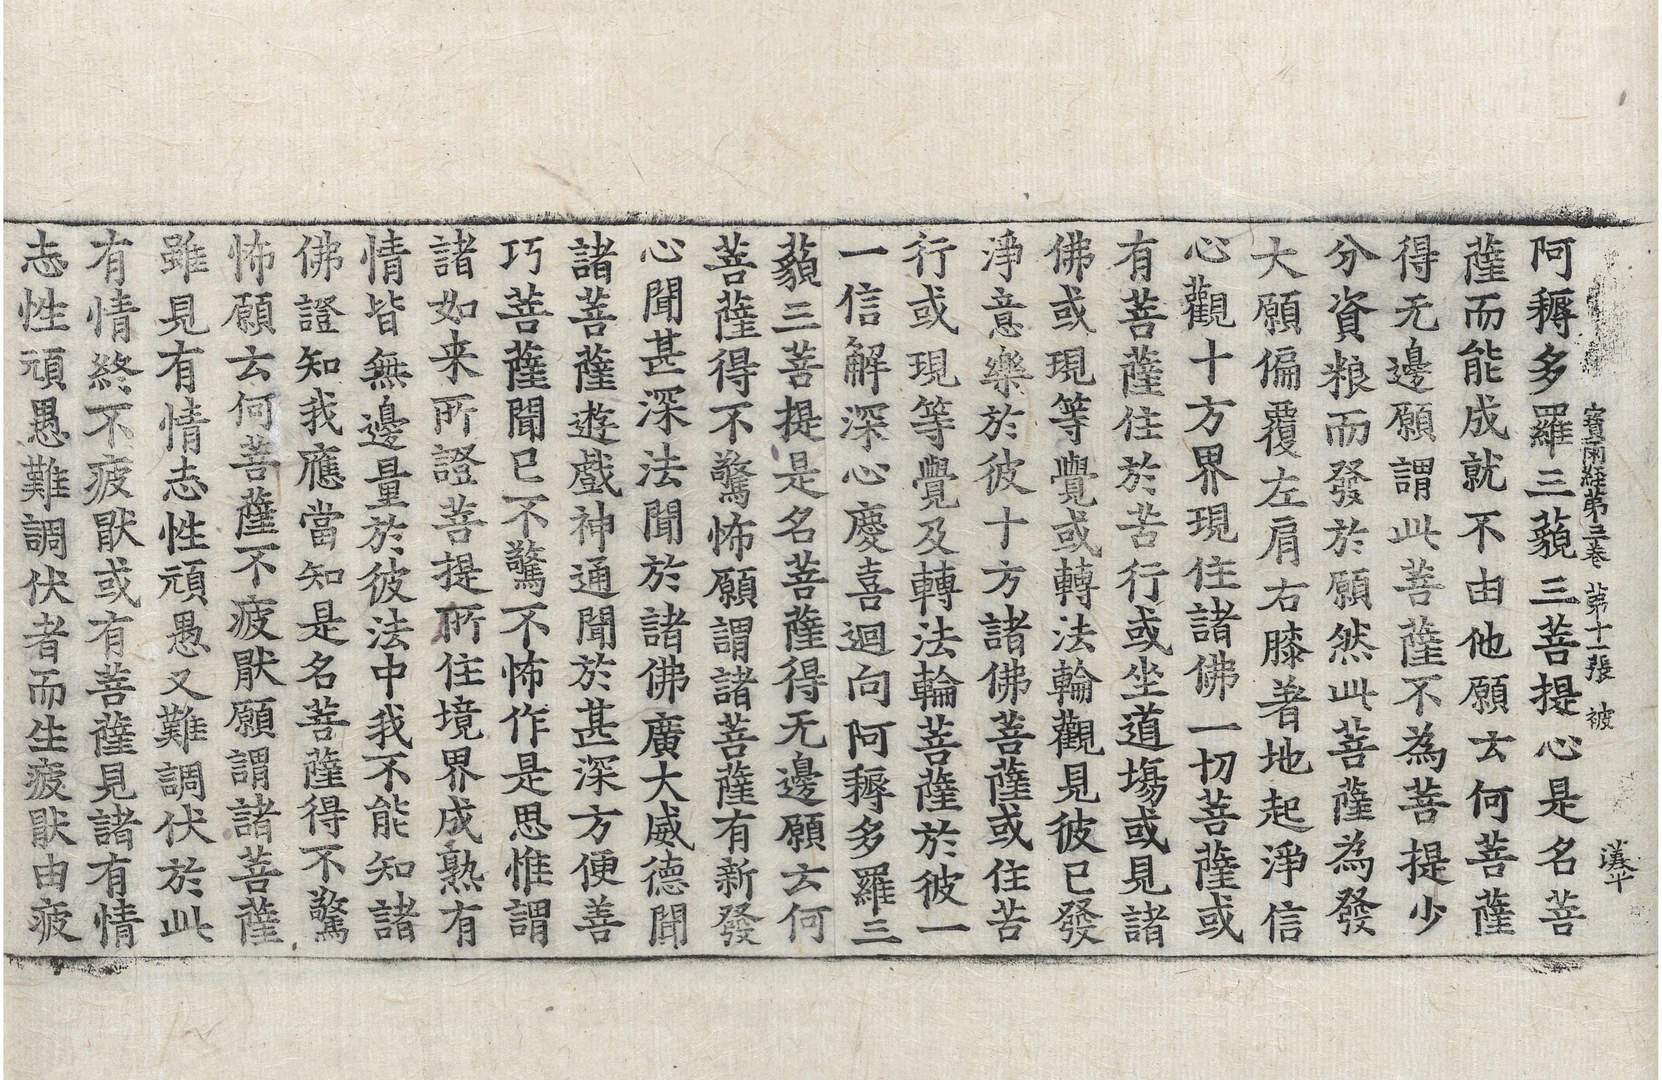 寶雨経第三卷 第十一張 被 漢平
阿耨多羅三藐三菩提心是名菩
薩而能成就不由他願云何菩薩
得无邊願謂此菩薩不為菩提少
分資粮而發於願然此菩薩為發
大願偏覆左肩右膝著地起淨信
心觀十方界現住諸佛一切菩薩或
有菩薩住於苦行或坐道場或見諸
佛或現等覺或轉法輪觀見彼已發
淨意樂於彼十方諸佛菩薩或住苦
行或現等覺及轉法輪菩薩於彼一
一信解深心慶喜迴向阿耨多羅三
藐三菩提是名菩薩得无邊願云何
菩薩得不驚怖願謂諸菩薩有新發
心聞甚深法聞於諸佛廣大威德聞
諸菩薩遊戲神通聞於甚深方便善
巧菩薩聞已不驚不怖作是思惟謂
諸如来所證菩提所住境界成熟有
情皆無邊量於彼法中我不能知諸
佛證知我應當知是名菩薩得不驚
怖願云何菩薩不疲猒願謂諸菩薩
雖見有情志性頑愚又難調伏於此
有情終不疲猒或有菩薩見諸有情
志性頑愚難調伏者而生疲猒由疲